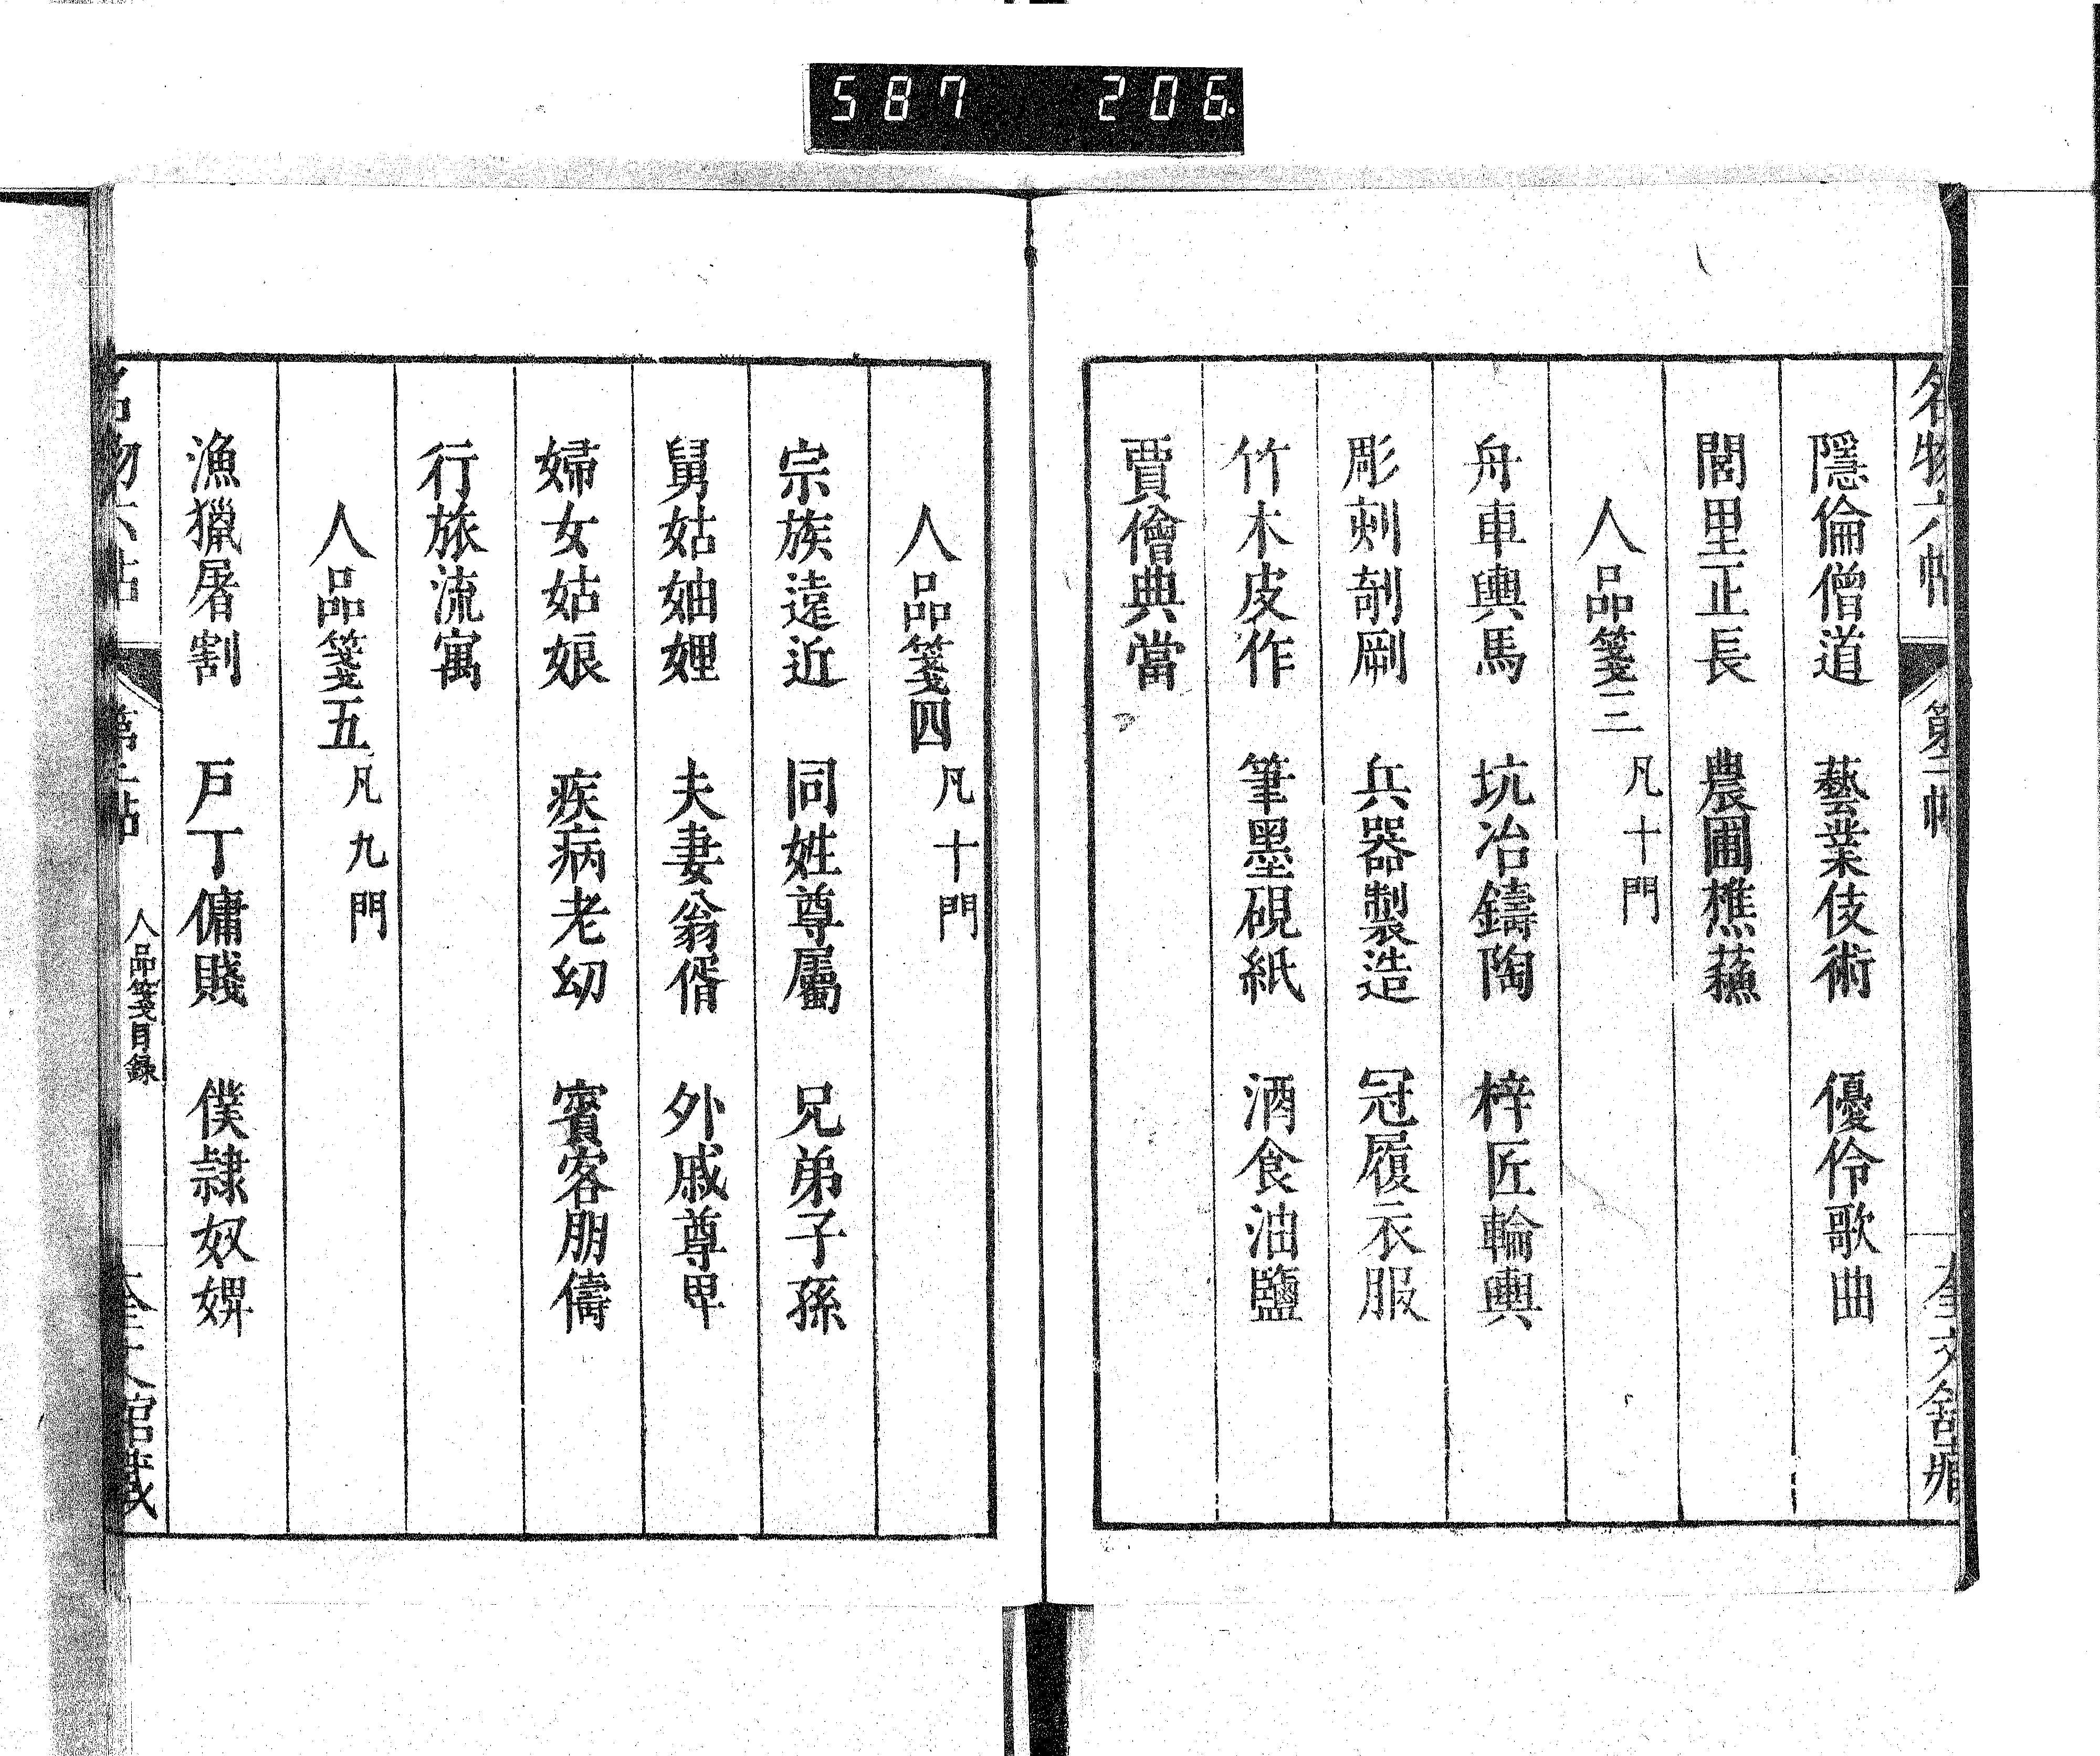 587 206
名物六帖 第二帖 奎文舘藏
隱倫僧道 藝業伎術 優伶歌曲
閭里正長 農圃樵蘓
人品箋三 凡十門
舟車輿馬 坑冶鑄陶 梓匠輪輿
彫刻剞劂 兵器製造 冠履衣服
竹木皮作 筆墨硯紙 酒食油鹽
賈儈典當
人品箋四 凡十門
宗族遠近 同姓尊屬 兄弟子孫
舅姑妯娌 夫妻翁偦 外戚尊卑
婦女姑娘 疾病老幼 賓客朋儔
行旅流寓
人品箋五 凡九門
漁獵屠割 戶丁傭賤 僕隷奴婢
名物六帖 第二帖 人品箋目録 奎文舘藏